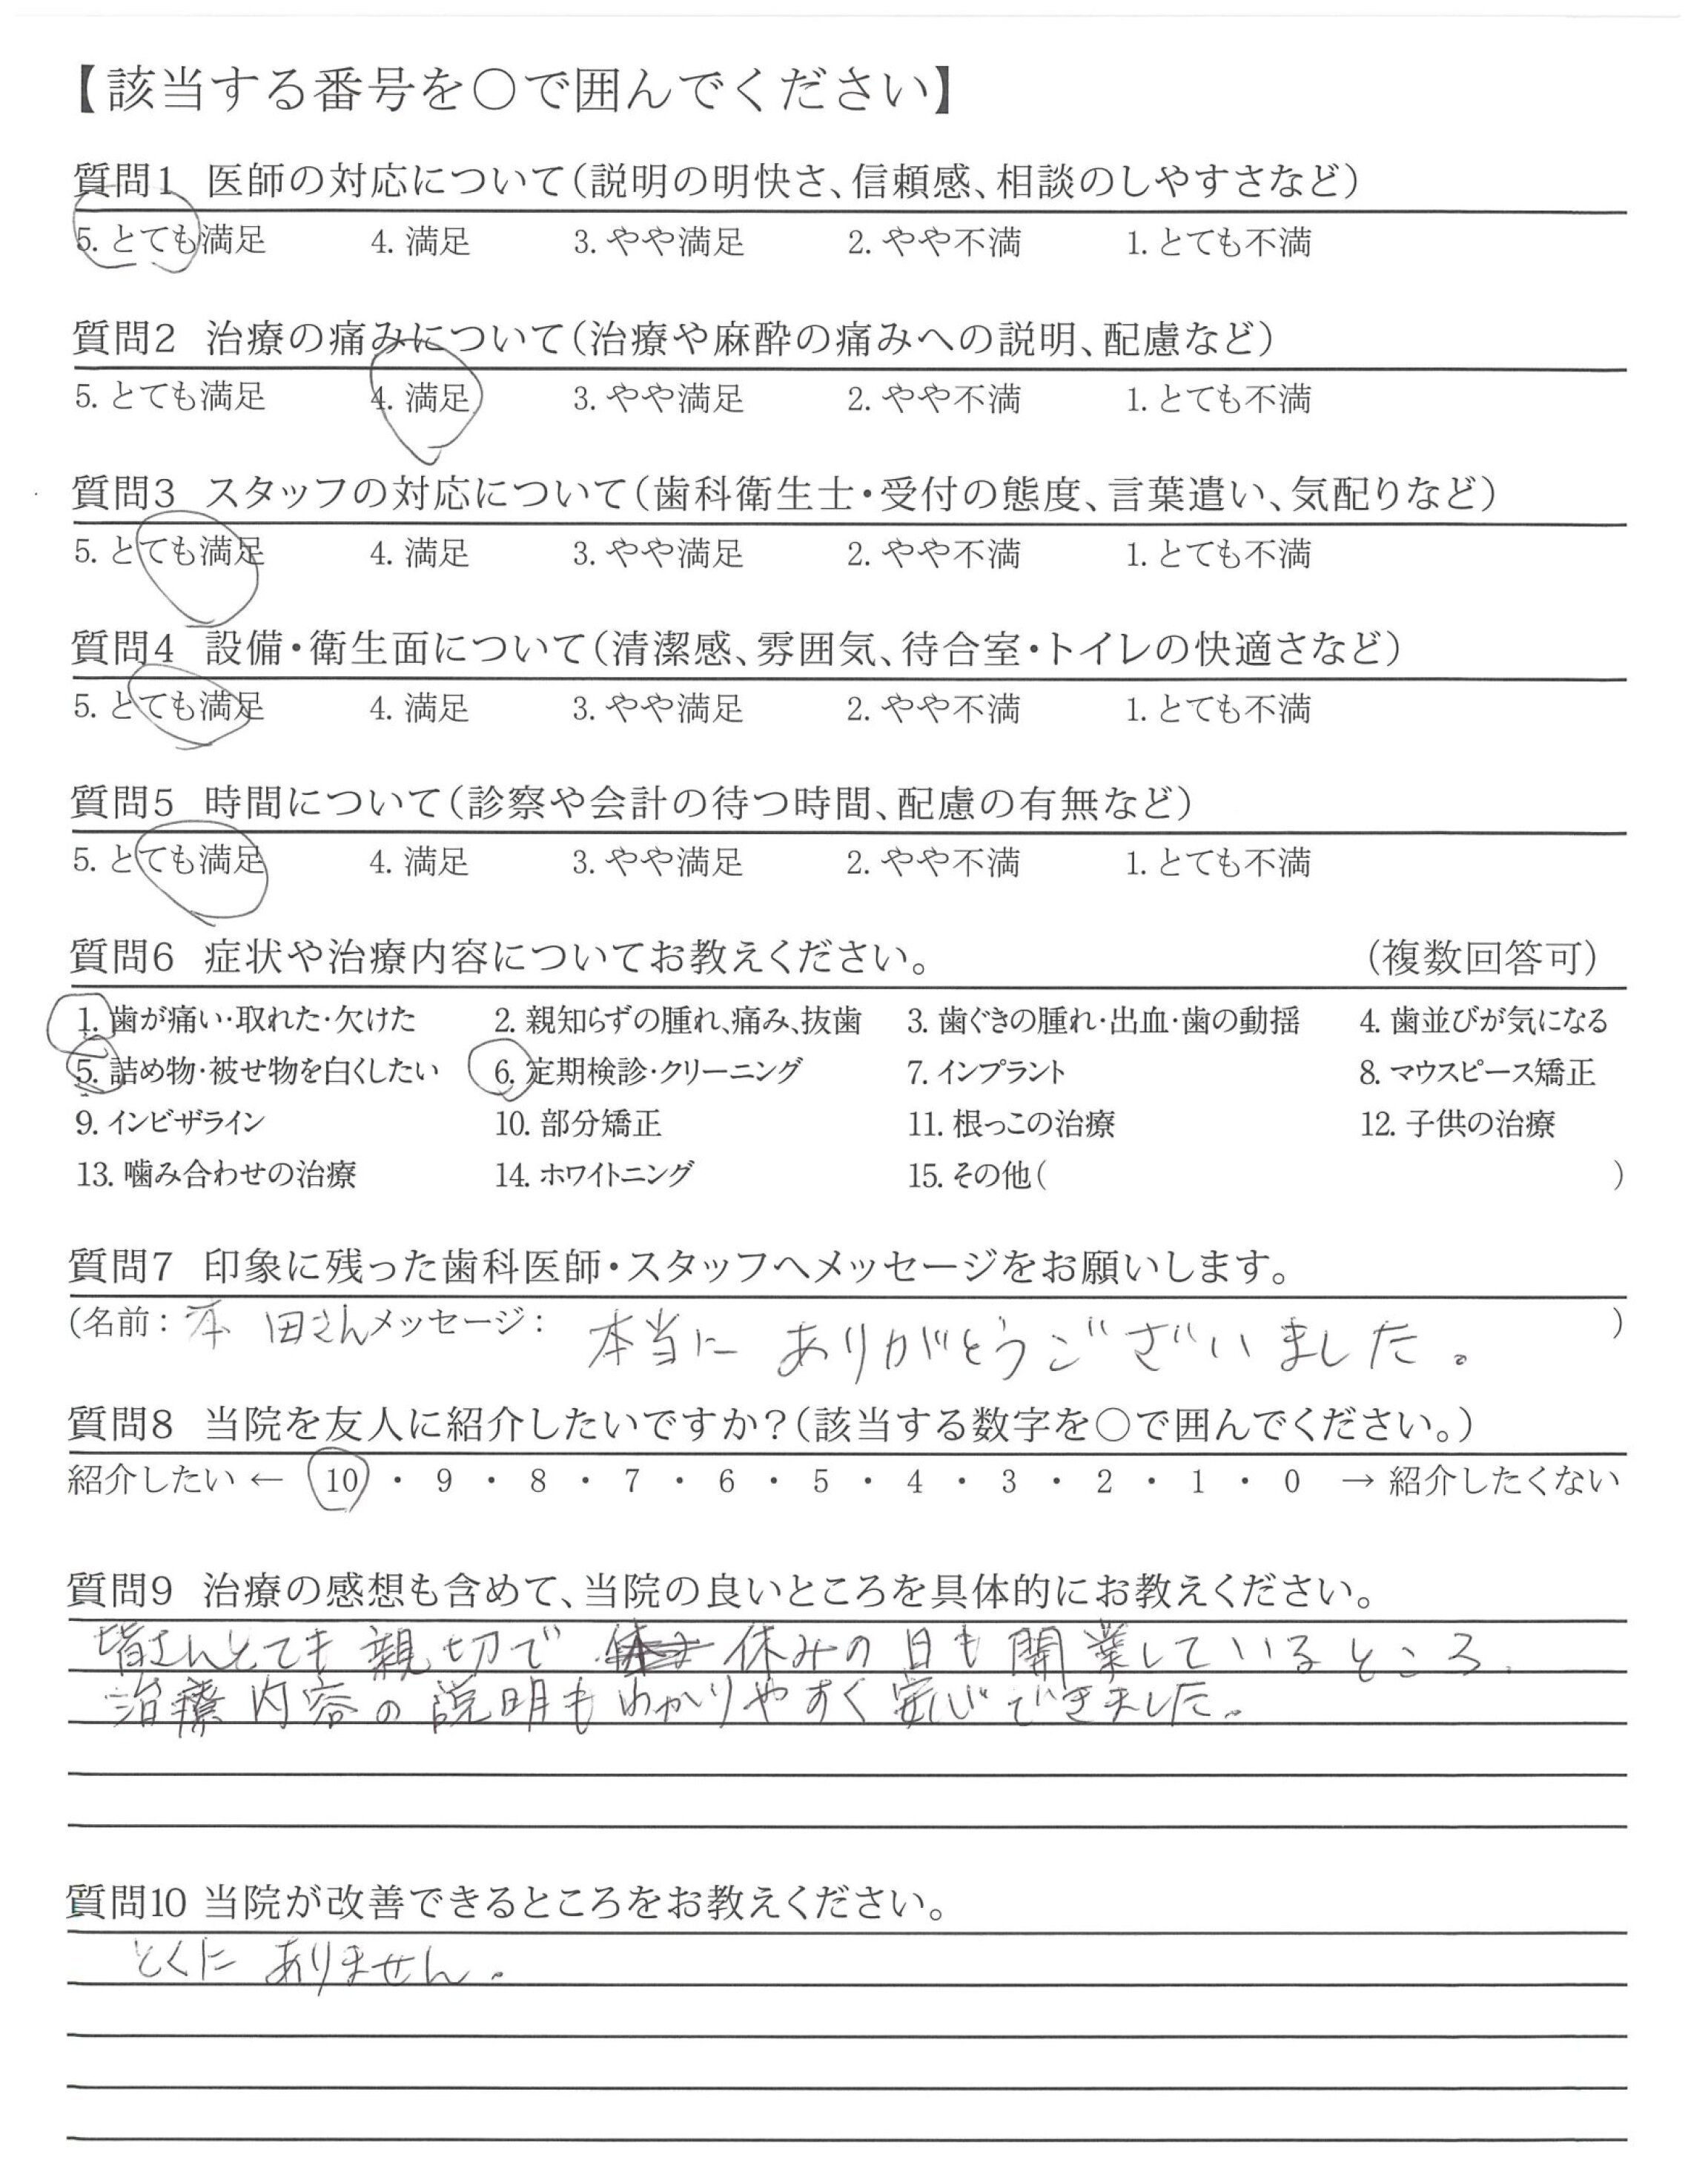 【該当する番号を○で囲んでください】
質問1 医師の対応について（説明の明快さ、信頼感、相談のしやすさなど）
5. とても満足 4. 満足 3. やや満足 2. やや不満 1. とても不満
質問2 治療の痛みについて（治療や麻酔の痛みへの説明、配慮など）
5. とても満足 4. 満足 3. やや満足 2. やや不満 1. とても不満
質問3 スタッフの対応について（歯科衛生士・受付の態度、言葉遣い、気配りなど）
5. とても満足 4. 満足 3. やや満足 2. やや不満 1. とても不満
質問4 設備・衛生面について（清潔感、雰囲気、待合室・トイレの快適さなど）
5. とても満足 4. 満足 3. やや満足 2. やや不満 1. とても不満
質問5 時間について（診察や会計の待つ時間、配慮の有無など）
5. とても満足 4. 満足 3. やや満足 2. やや不満 1. とても不満
質問6 症状や治療内容についてお教えください。 （複数回答可）
1. 歯が痛い・取れた・欠けた 2. 親知らずの腫れ、痛み、抜歯 3. 歯ぐきの腫れ・出血・歯の動揺 4. 歯並びが気になる
5. 詰め物・被せ物を白くしたい 6. 定期検診・クリーニング 7. インプラント 8. マウスピース矯正
9. インビザライン 10. 部分矯正 11. 根っこの治療 12. 子供の治療
13. 噛み合わせの治療 14. ホワイトニング 15. その他（ ）
質問7 印象に残った歯科医師・スタッフへメッセージをお願いします。
（名前：本田さんメッセージ： 本当にありがとうございました。 ）
質問8 当院を友人に紹介したいですか？（該当する数字を○で囲んでください。）
紹介したい ← 10 ・ 9 ・ 8 ・ 7 ・ 6 ・ 5 ・ 4 ・ 3 ・ 2 ・ 1 ・ 0 → 紹介したくない
質問9 治療の感想も含めて、当院の良いところを具体的にお教えください。
皆さんとても親切で 休みの日も開業しているところ
治療内容の説明もわかりやすく安心できました。
質問10 当院が改善できるところをお教えください。
とくにありません。